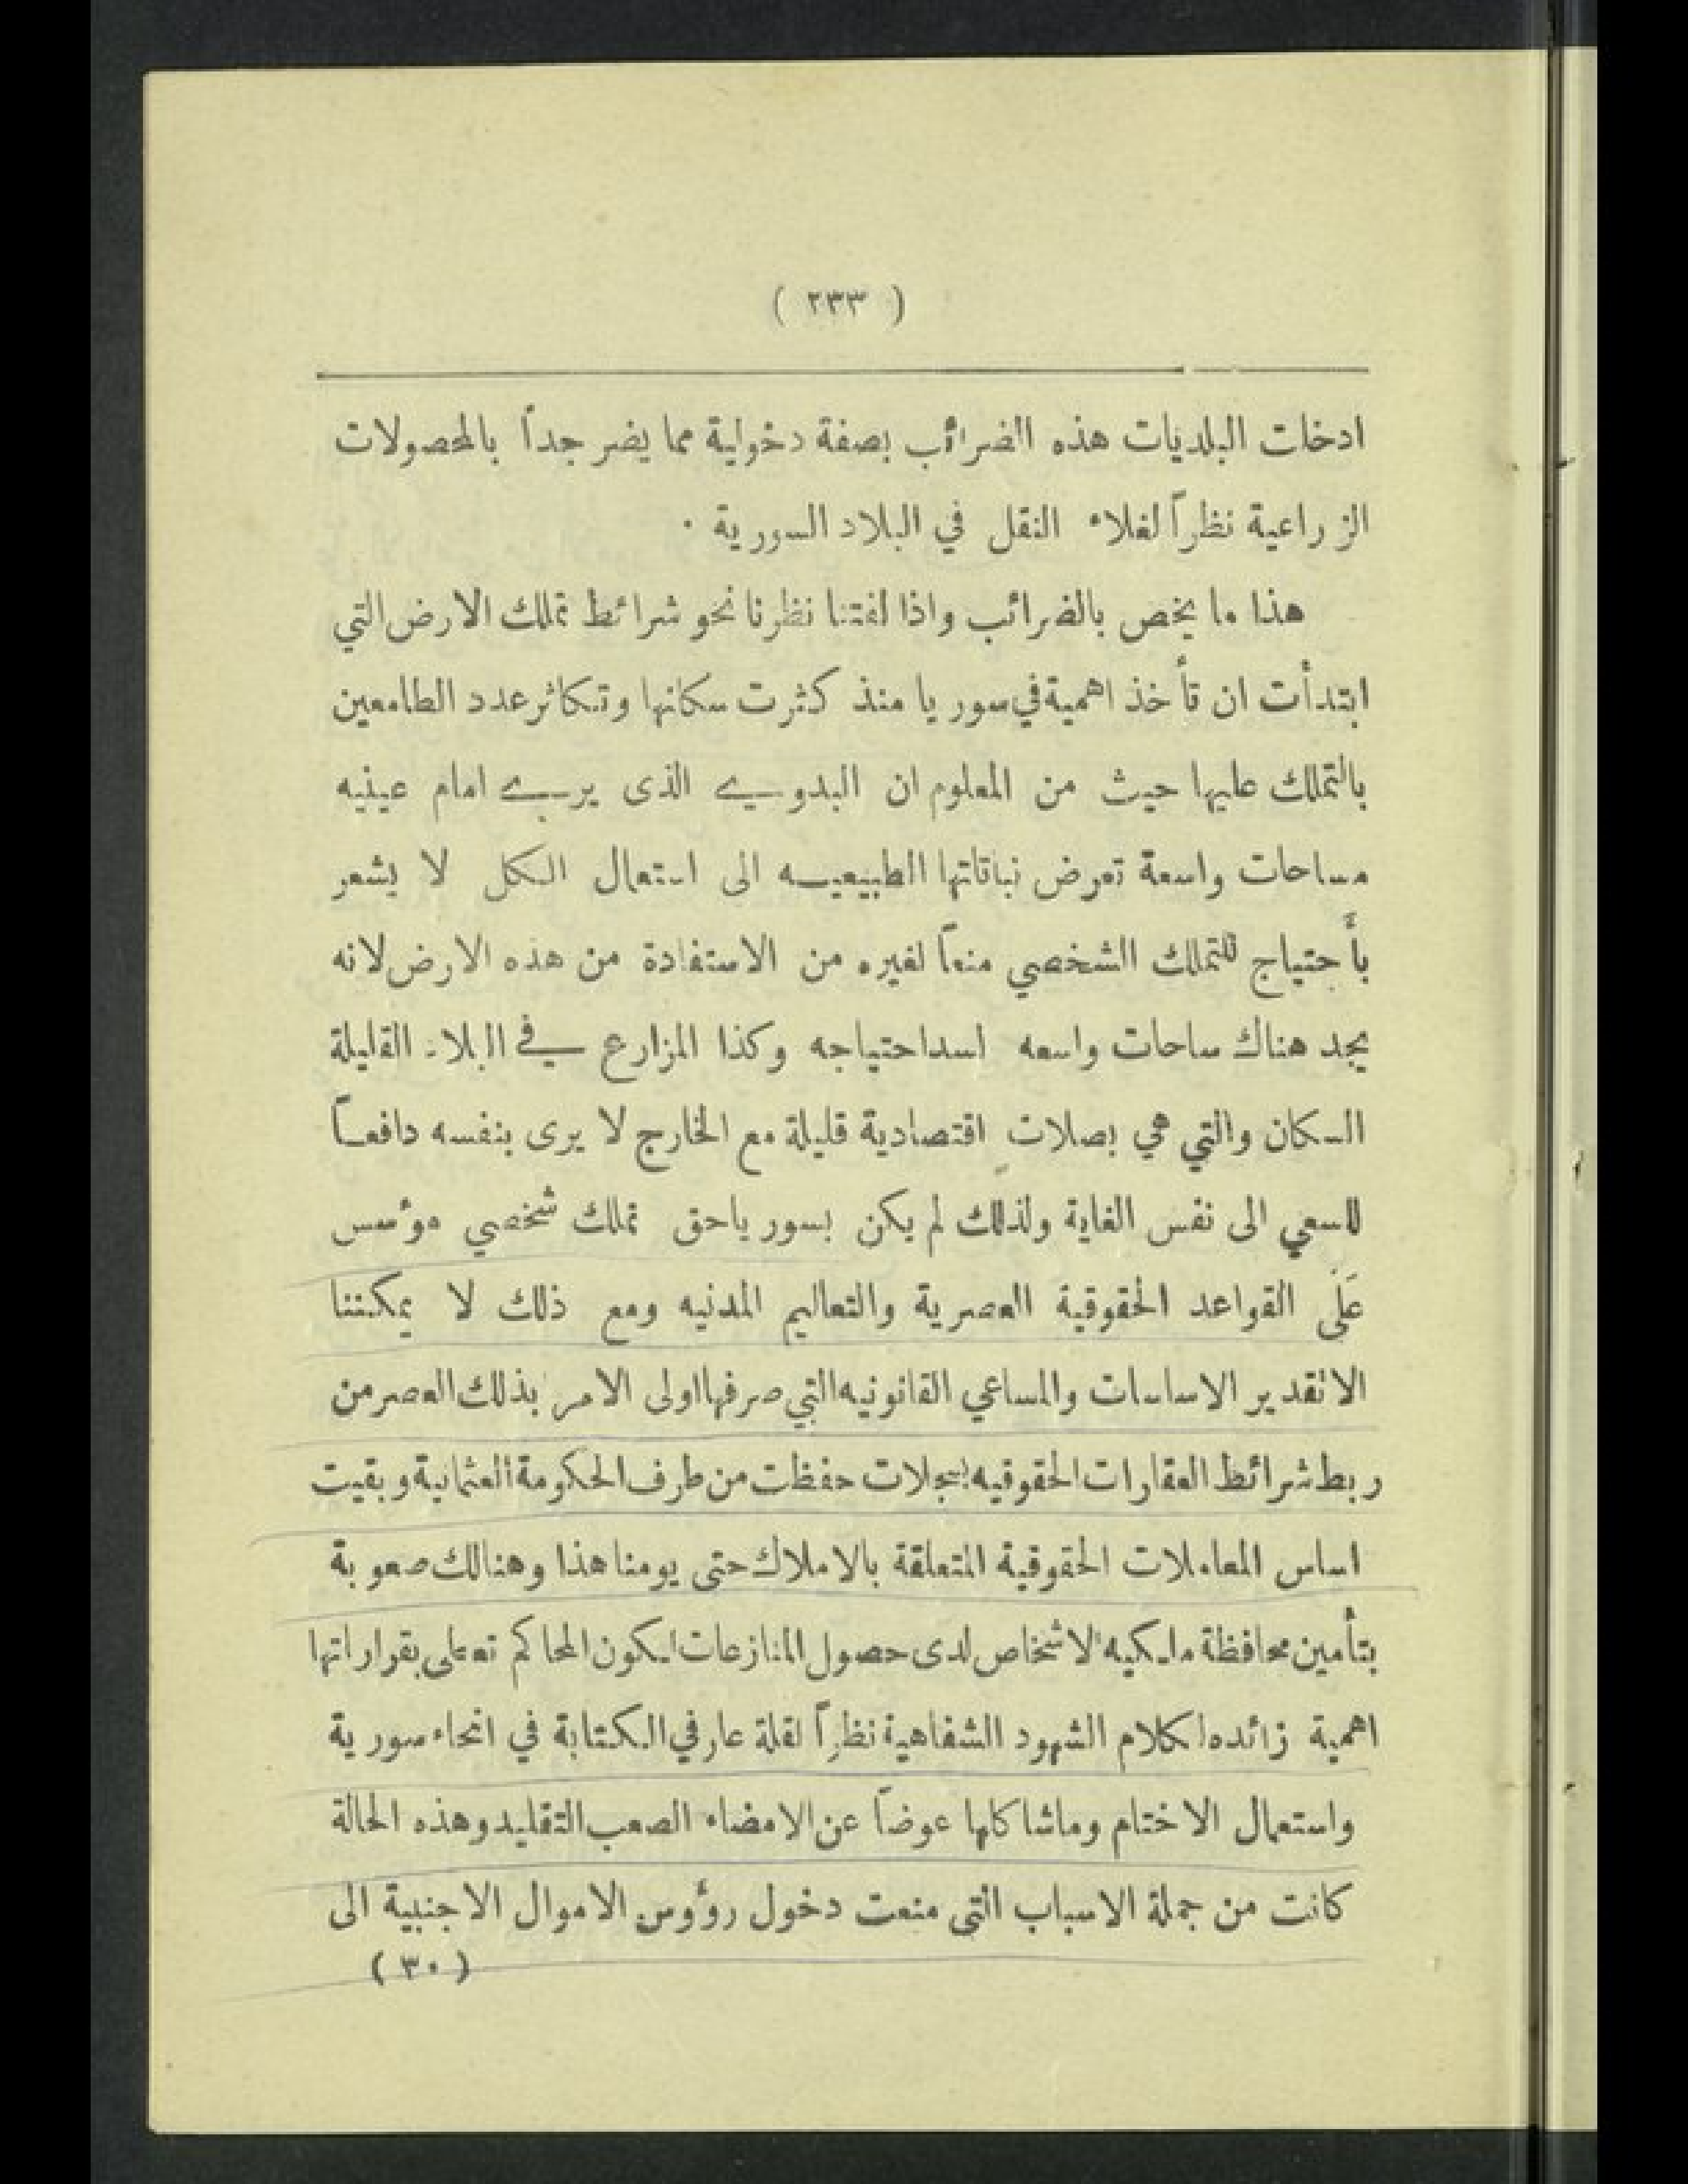 ( ٢٣٣ )
ادخلت البلديات هذه الضرائب بصفة دخولية مما يضر جداً بالمحصولات
الزراعية نظراً لغلاء النقل في البلاد السورية ٠
هذا ما يخص بالضرائب واذا لفتنا نظرنا نحو شرائط تملك الارض التي
ابتدأت ان تأخذ اهمية في سوريا منذ كثرت سكانها وتكاثر عدد الطامعين
بالتملك عليها حيث من المعلوم ان البدوي الذى يرى امام عينيه
مساحات واسعة تعرض نباتاتها الطبيعيه الى استعمال الكل لا يشعر
بأحتياج للتملك الشخصي منعاً لغيره من الاستفادة من هذه الارض لانه
يجد هناك ساحات واسعه لسد احتياجه وكذا المزارع في البلاد القليلة
السكان والتي هي بصلات اقتصادية قليلة مع الخارج لا يرى بنفسه دافعاً
للسعي الى نفس الغاية ولذلك لم يكن بسوريا حق تملك شخصي مؤسس
عَلَى القواعد الحقوقية العصرية والتعاليم المدنيه ومع ذلك لا يمكننا
الا تقدير الاساسات والمساعي القانونيه التي صرفها اولى الامر بذلك العصر من
ربط شرائط العقارات الحقوقيه بسجلات حفظت من طرف الحكومة العثمانية وبقيت
اساس المعاملات الحقوقية المتعلقة بالاملاك حتى يومنا هذا وهنالك صعوبة
بتأمين محافظة ملكيه الاشخاص لدى حصول المنازعات لكون المحاكم تعطى بقراراتها
اهمية زائده لكلام الشهود الشفاهية نظراً لقلة عارفي الكتابة في انحاء سورية
واستعمال الاختام وماشاكلها عوضاً عن الامضاء الصعب التقليد وهذه الحالة
كانت من جملة الاسباب التى منعت دخول رؤوس الاموال الاجنبية الى
( ٣٠ )